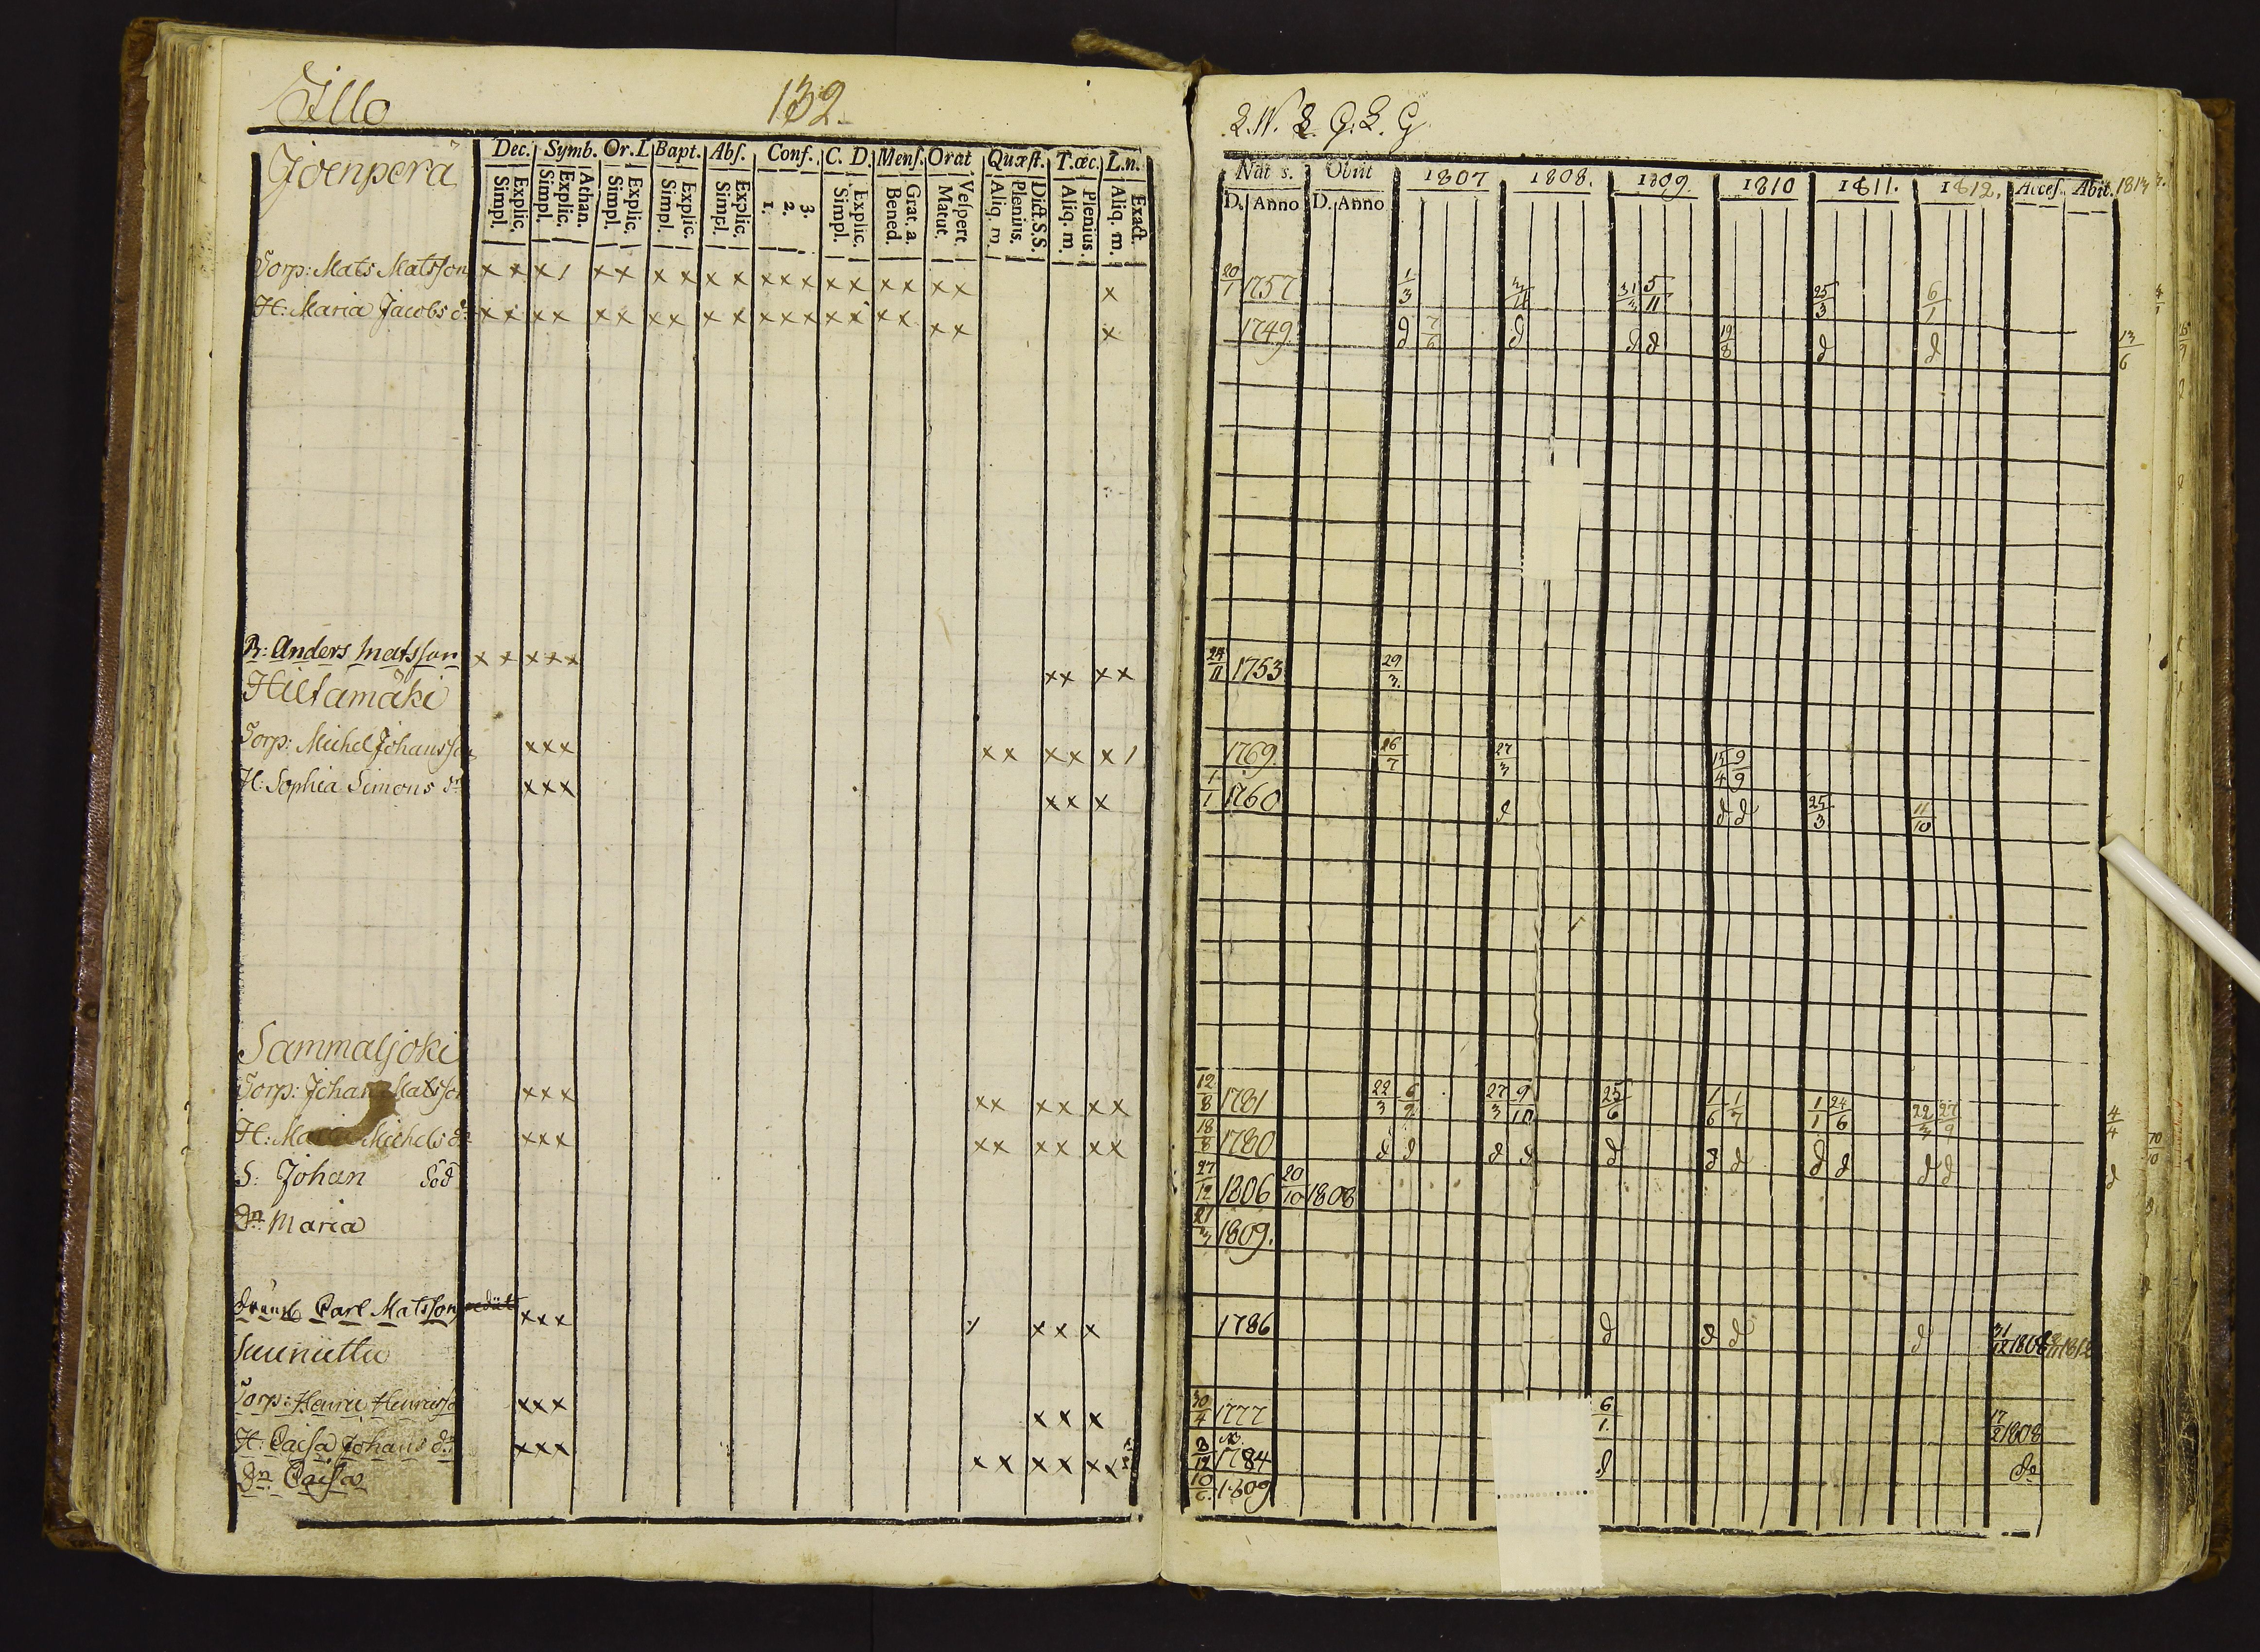 Illo 132.
Joenperä
Dec. Symb. Or. L Bapt. Abſ. Conf. C. D. Menſ. Orat Quæſt. T.œc. L.n.
Explic. Simpl. Athan. Explic. Simpl. Explic. Simpl. Explic. Simpl. Explic. Simpl. 3. 2. 1. Explic. Simpl. Grat. a. Bened. Veſpert. Matut. Dict.S.S. Plenius. Aliq. m. Plenius. Aliq. m. Exact. Aliq. m.
Torp: Mats Matsson x x x / x x x x x x x x x x x x x x x x
H: Maria Jacobs dr x x x x x x x x x x x x x x x x x x x x
R: Anders Matsson x x x x x x x x x
Hiltamäki
Torp: Michel Johansson x x x x x x x x /
H: Sophia Simons dr x x x x x x
Sammaljoki
Torp: Johan Matsson x x x x x x x x x
H: Michels dr x x x x x x x x x
S: Johan död
Dr Maria
Dräng Carl Matsson x x x / x x x
Torp: Henric Henricsson x x x x x x
H: Caisa Johans dr x x x x x x x x x
Dr Caisa
Nat s. Obiit 1807 1808. 1809. 1810 1811. 1812. Acceſ. Abit. 1813
D. Anno D. Anno
20/1 1757 1/3 31/3 5/11 25/3 6/1
1749. d 7/6 d d d 19/8 d d 13/6
24/11 1753 29/3.
1769. 26/7 27/3 15/4 9/9
1/1 1760 d d d 25/3 11/10
12/8 1781 22/3 6/9 27/3 9/10 25/6 1/6 1/7 1/1 24/6 22/3 27/9 4/4
18/8 1780 d d d d d d d d d d d d
27/12 1806 20/10 1808
21/3 1809.
1786 d d d d 31/12 1808
30/4 1777 6/1. 17/2 1808
1784 d do
10/6. 1809